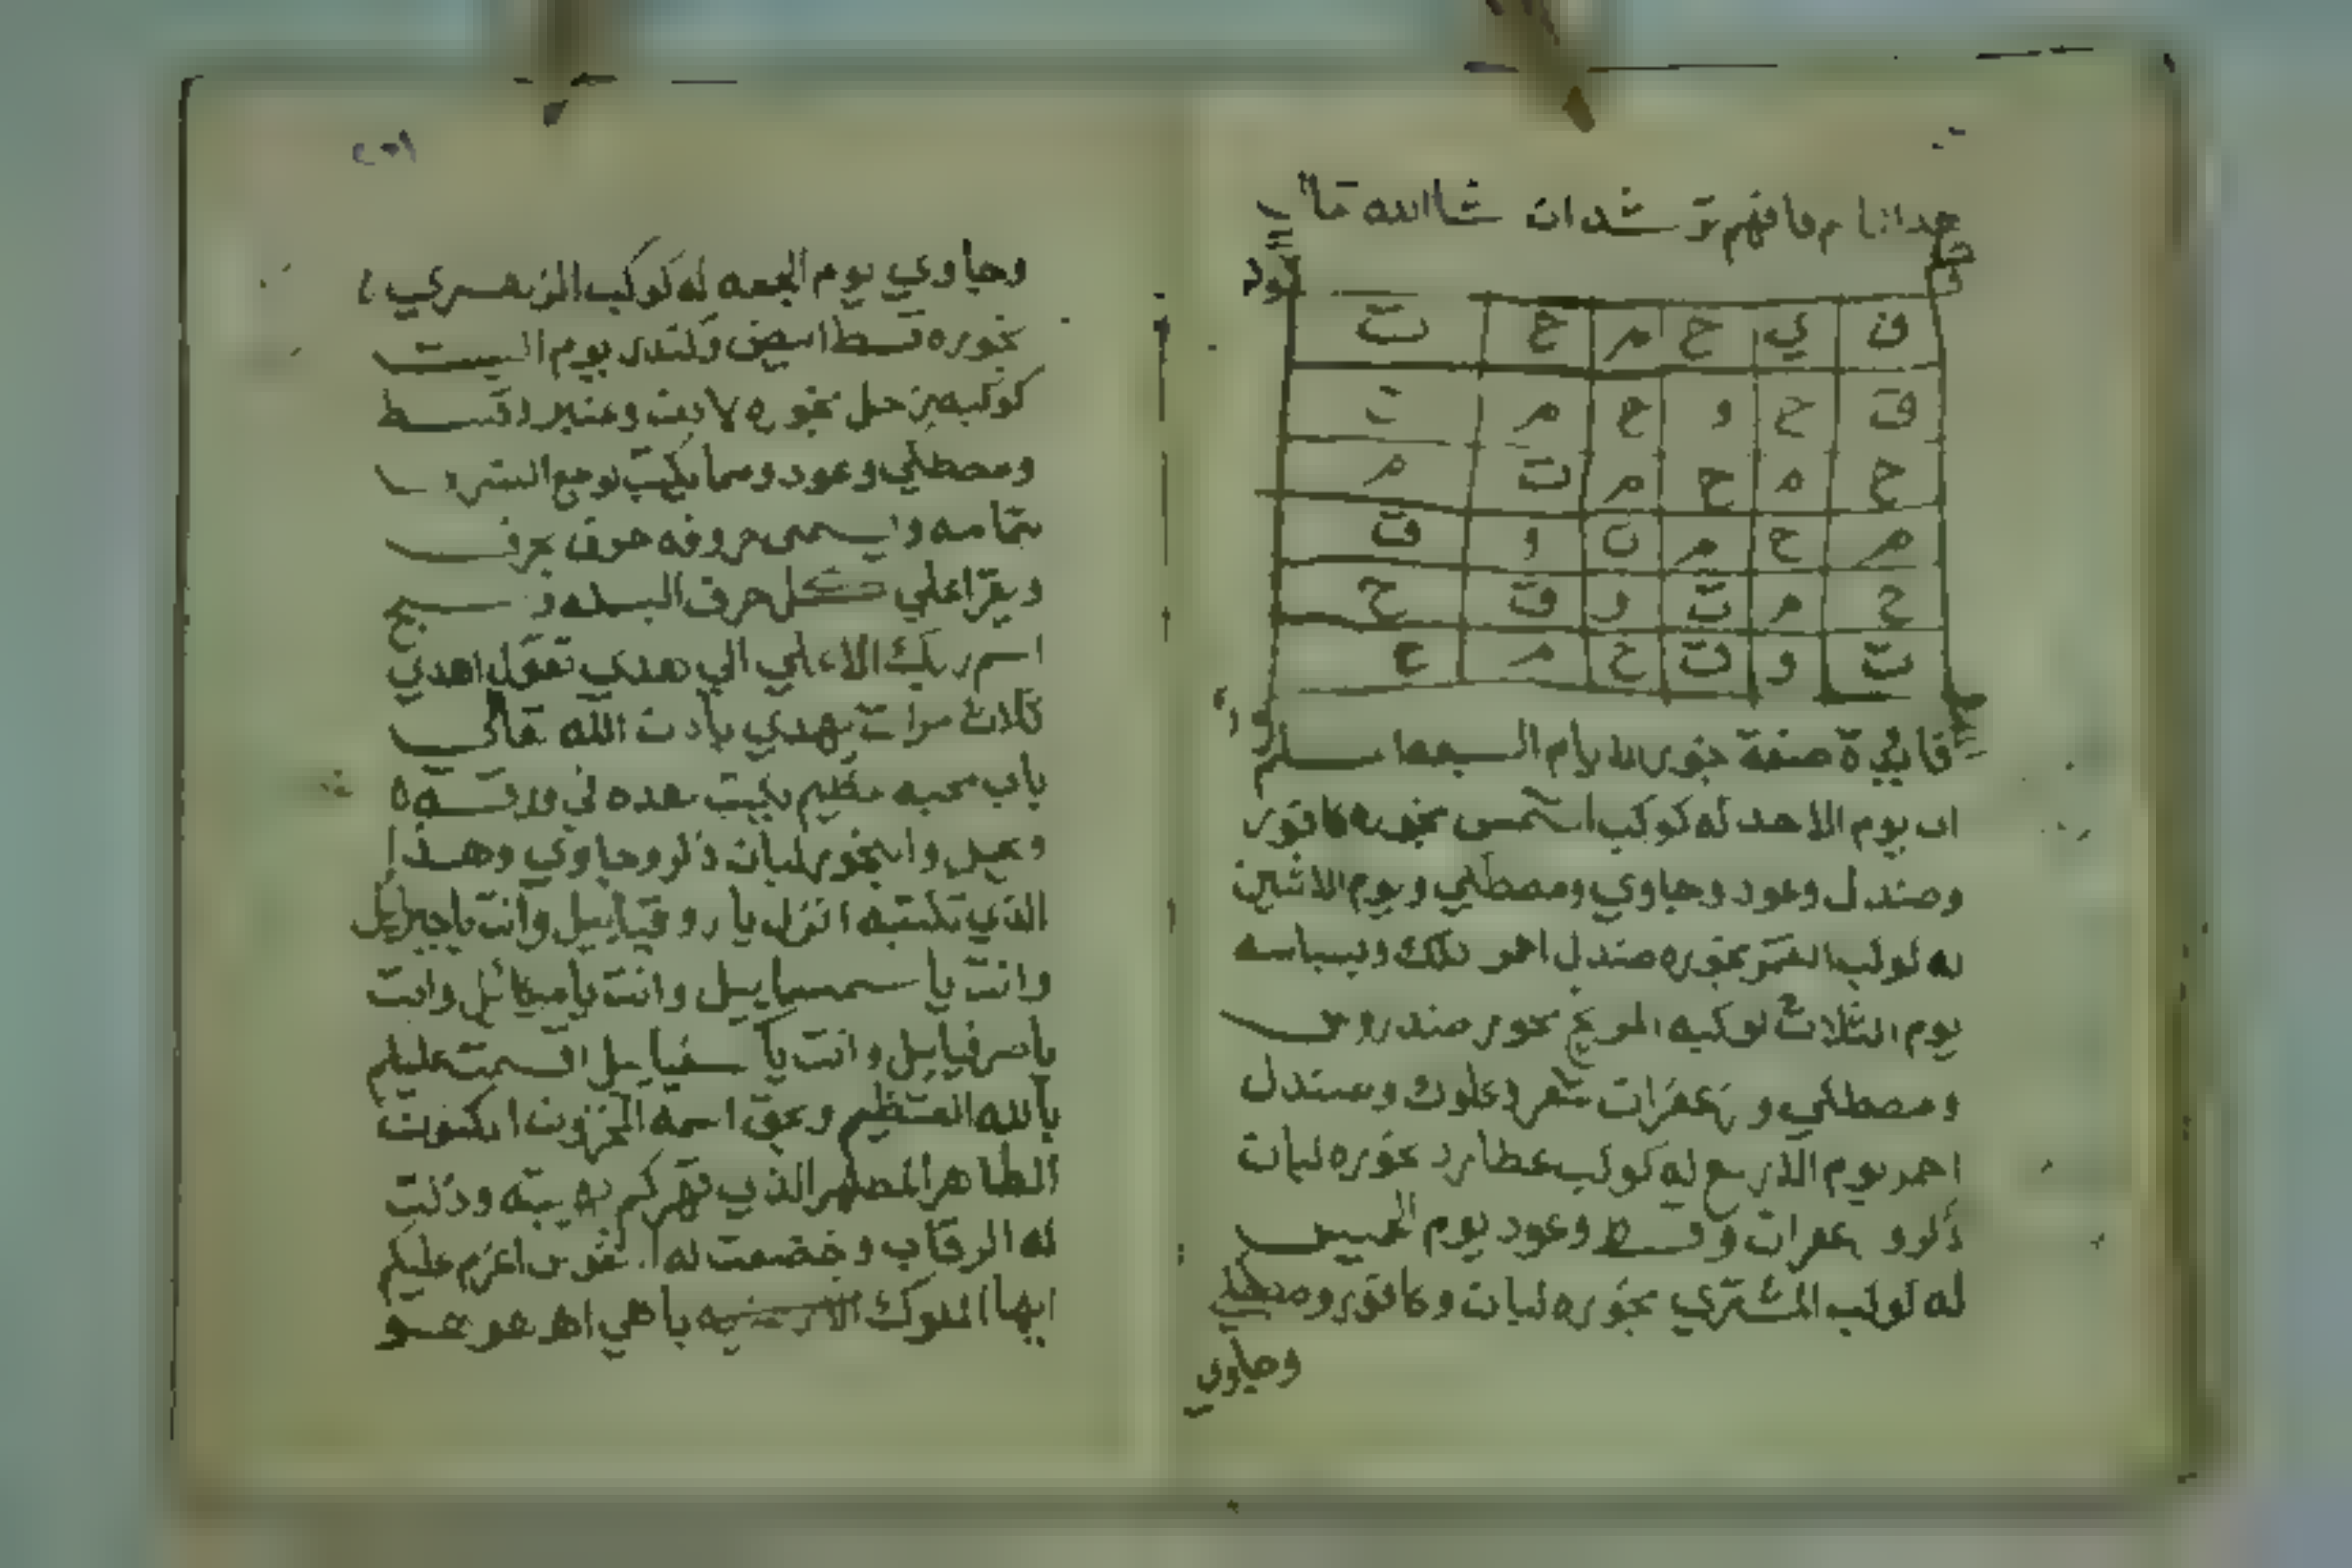 فافهم ترشد ان شاالله تعالى
ق ي ح م ح ت
ق ح و ح م ت
ح م ح م ت م
م ح م ت و ق
ح م ت و ق ح
ت و ت ح م ح
فايدة صفة بخور الايام السبعة
يوم الاحد له كوكب الشمس بخوره كافور
وصندل وعود وجاوي ومصطكي ويوم الاثنين
له كوكب القمر بخوره صندل احمر وبسباسه
يوم الثلاث كوكبه المريخ بخور صندروس
ومصطكي وزعفران وعلوك وصندل
احمر يوم الاربع له كوكب عطارد بخوره لبان
ذكر وزعفران وقسط وعود يوم الخميس
له كوكب المشتري بخوره لبان وكافور ومصطكي
وجاوي
وجاوي يوم الجمعه له كوكب الزهري
بخوره قسط ابيض يوم السبت
كوكبه زحل بخوره لادن وعنبر وقسط
ومصطكي وعود ومما يكتب
بتمامه حروفه حرف بحرف
ويقرا علي كل حرف البسمله و سبح
اسم ربك الاعلي الي هدي تقول اهدي
ثلاث مرات يهدي بادن الله تعالى
باب محبه عظيم يكتب هده في ورقه
والبخور لبان ذكر وجاوي وهذا
الذي تكتبه انزل يا روقيايل وانت يا جبرايل
وانت يا سمسمايل وانت يا ميكائل وانت
يا صرفيايل وانت يا اقسمت عليكم
بالله العظيم وبحق اسمه المخزون المكنون
الطاهر المطهر الذي قهركم به ودلت
له الرقاب وخضعت له اعزم عليكم
ايها الملوك الارضيه